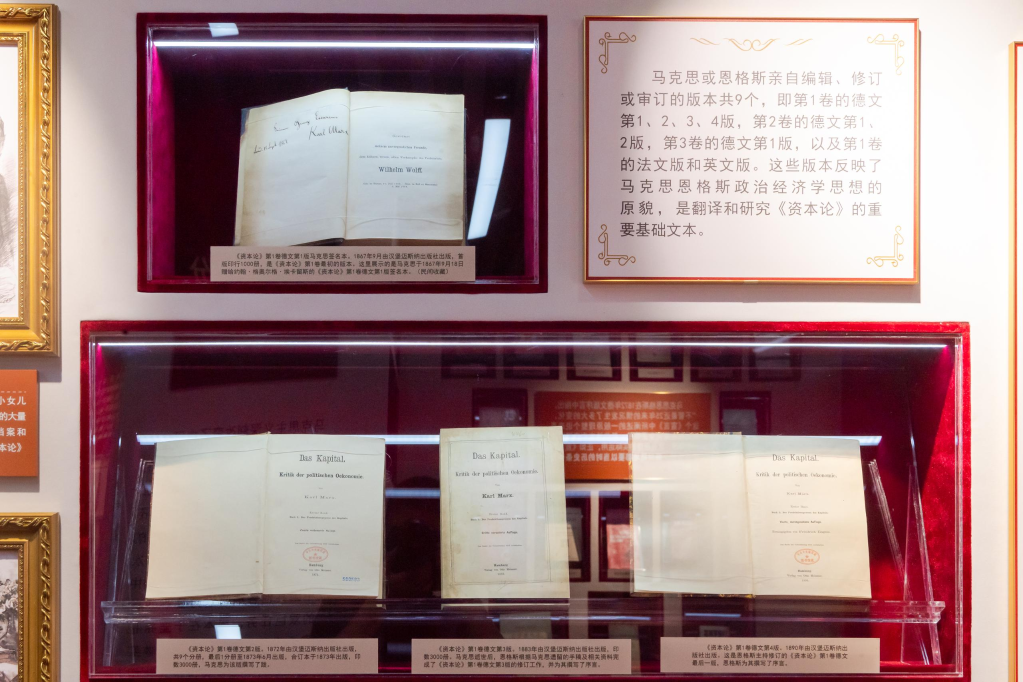 Karl Marx
Wilhelm Wolff
《资本论》第1卷德文第1版马克思签名本。1867年9月由汉堡迈斯纳出版社出版，首
版印行1000册，是《资本论》第1卷最初的版本。这里展示的是马克思于1867年9月18日
赠给约翰·格奥尔格·埃卡留斯的《资本论》第1卷德文第1版签名本。（民间收藏）
马克思或恩格斯亲自编辑、修订
或审订的版本共9个，即第1卷的德文
第1、2、3、4版，第2卷的德文第1、
2版，第3卷的德文第1版，以及第1卷
的法文版和英文版。这些版本反映了
马克思恩格斯政治经济学思想的
原貌，是翻译和研究《资本论》的重
要基础文本。
小女儿
的大量
档案和
本论》
Das Kapital.
Kritik der politischen Oekonomie.
Karl Marx
Hamburg
Das Kapital.
Kritik der politischen Oekonomie.
Karl Marx
Hamburg
Verlag von Otto Meissner
Das Kapital.
Kritik der politischen Oekonomie.
Karl Marx
Hamburg
Verlag von Otto Meissner
《资本论》第1卷德文第2版，1872年由汉堡迈斯纳出版社出版，
共9个分册，最后1分册至1873年6月出版，合订本于1873年出版，印
数3000册，马克思为该版撰写了跋。
《资本论》第1卷德文第3版，1883年由汉堡迈斯纳出版社出版，印
数3000册，马克思逝世后，恩格斯根据马克思遗留的手稿及相关资料完
成了《资本论》第1卷德文第3版的修订工作，并为其撰写了序言。
《资本论》第1卷德文第4版，1890年由汉堡迈斯纳出
版社出版。这是恩格斯主持修订的《资本论》第1卷德文
最后一版，恩格斯为其撰写了序言。